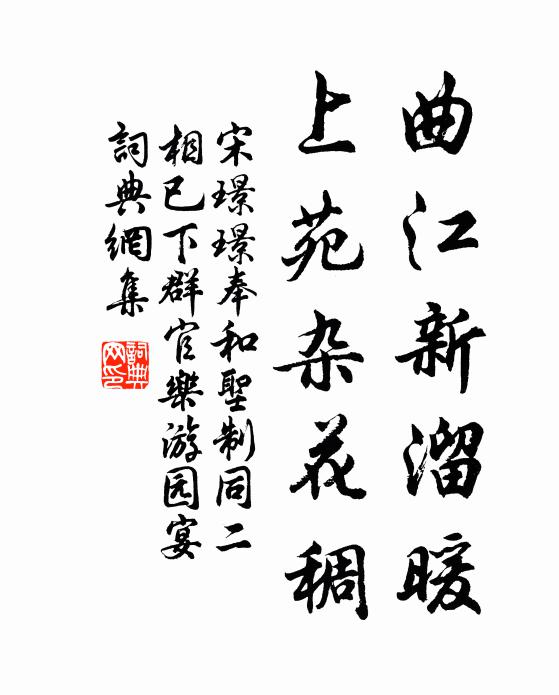 曲江新溜暖
上苑杂花稠
宋璟璟奉和聖制同二
相已下群官樂游园宴
詞典網集
詞典网印